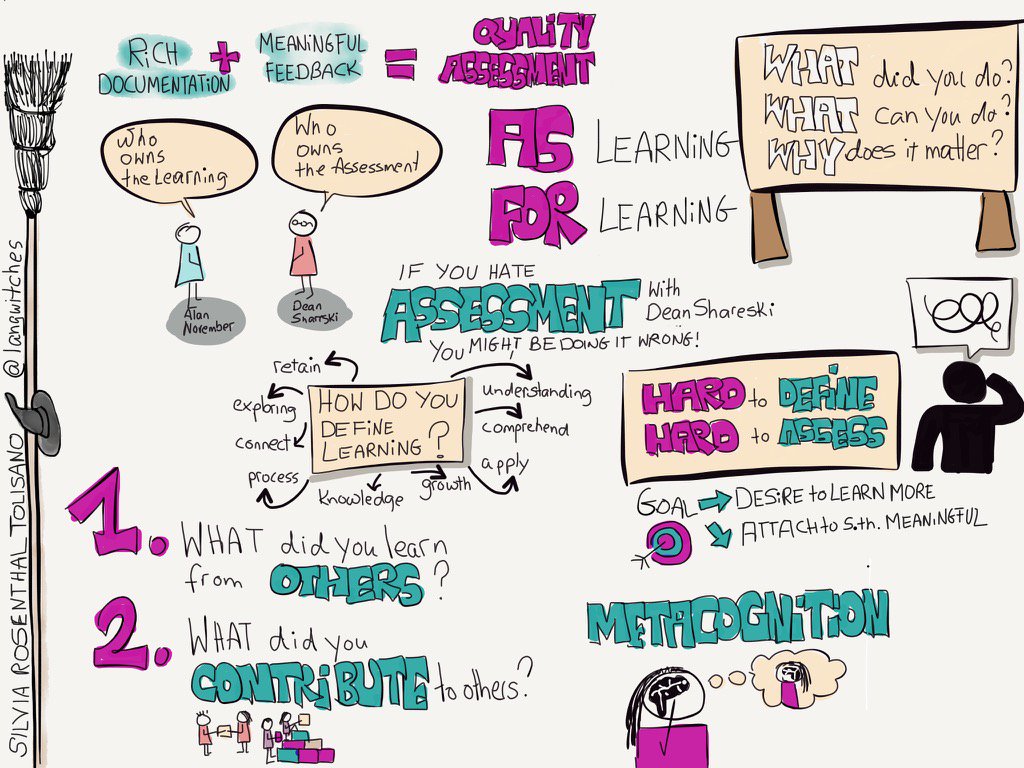 RiCH
DOCUMENTATION
+
MEANiNGFUL
FEEDBACK
=
QUALITY
ASSESSMENT
AS LEARNiNG
FOR LEARNiNG
WHAT did you do?
WHAT can you do?
WHY does it matter?
Who
owns
the Learning
Who
owns
the Assessment
Alan
November
Dean
Shareski
IF YOU HATE
ASSESSMENT
with
Dean Shareski
YOU MIGHT BE DOING IT WRONG!
HOW DO YOU
DEFINE
LEARNING?
retain
exploring
connect
process
knowledge
growth
apply
comprehend
understanding
HARD to DEFiNE
HARD to ASSESS
GOAL
DESiRE to LEARN MORE
ATTACH to S.th. MEANiNGFUL
1. WHAT did you learn
from OTHERS?
2. WHAT did you
CONTRiBUTE to others?
METACOGNiTiON
SILVIA ROSENTHAL TOLISANO @langwitches